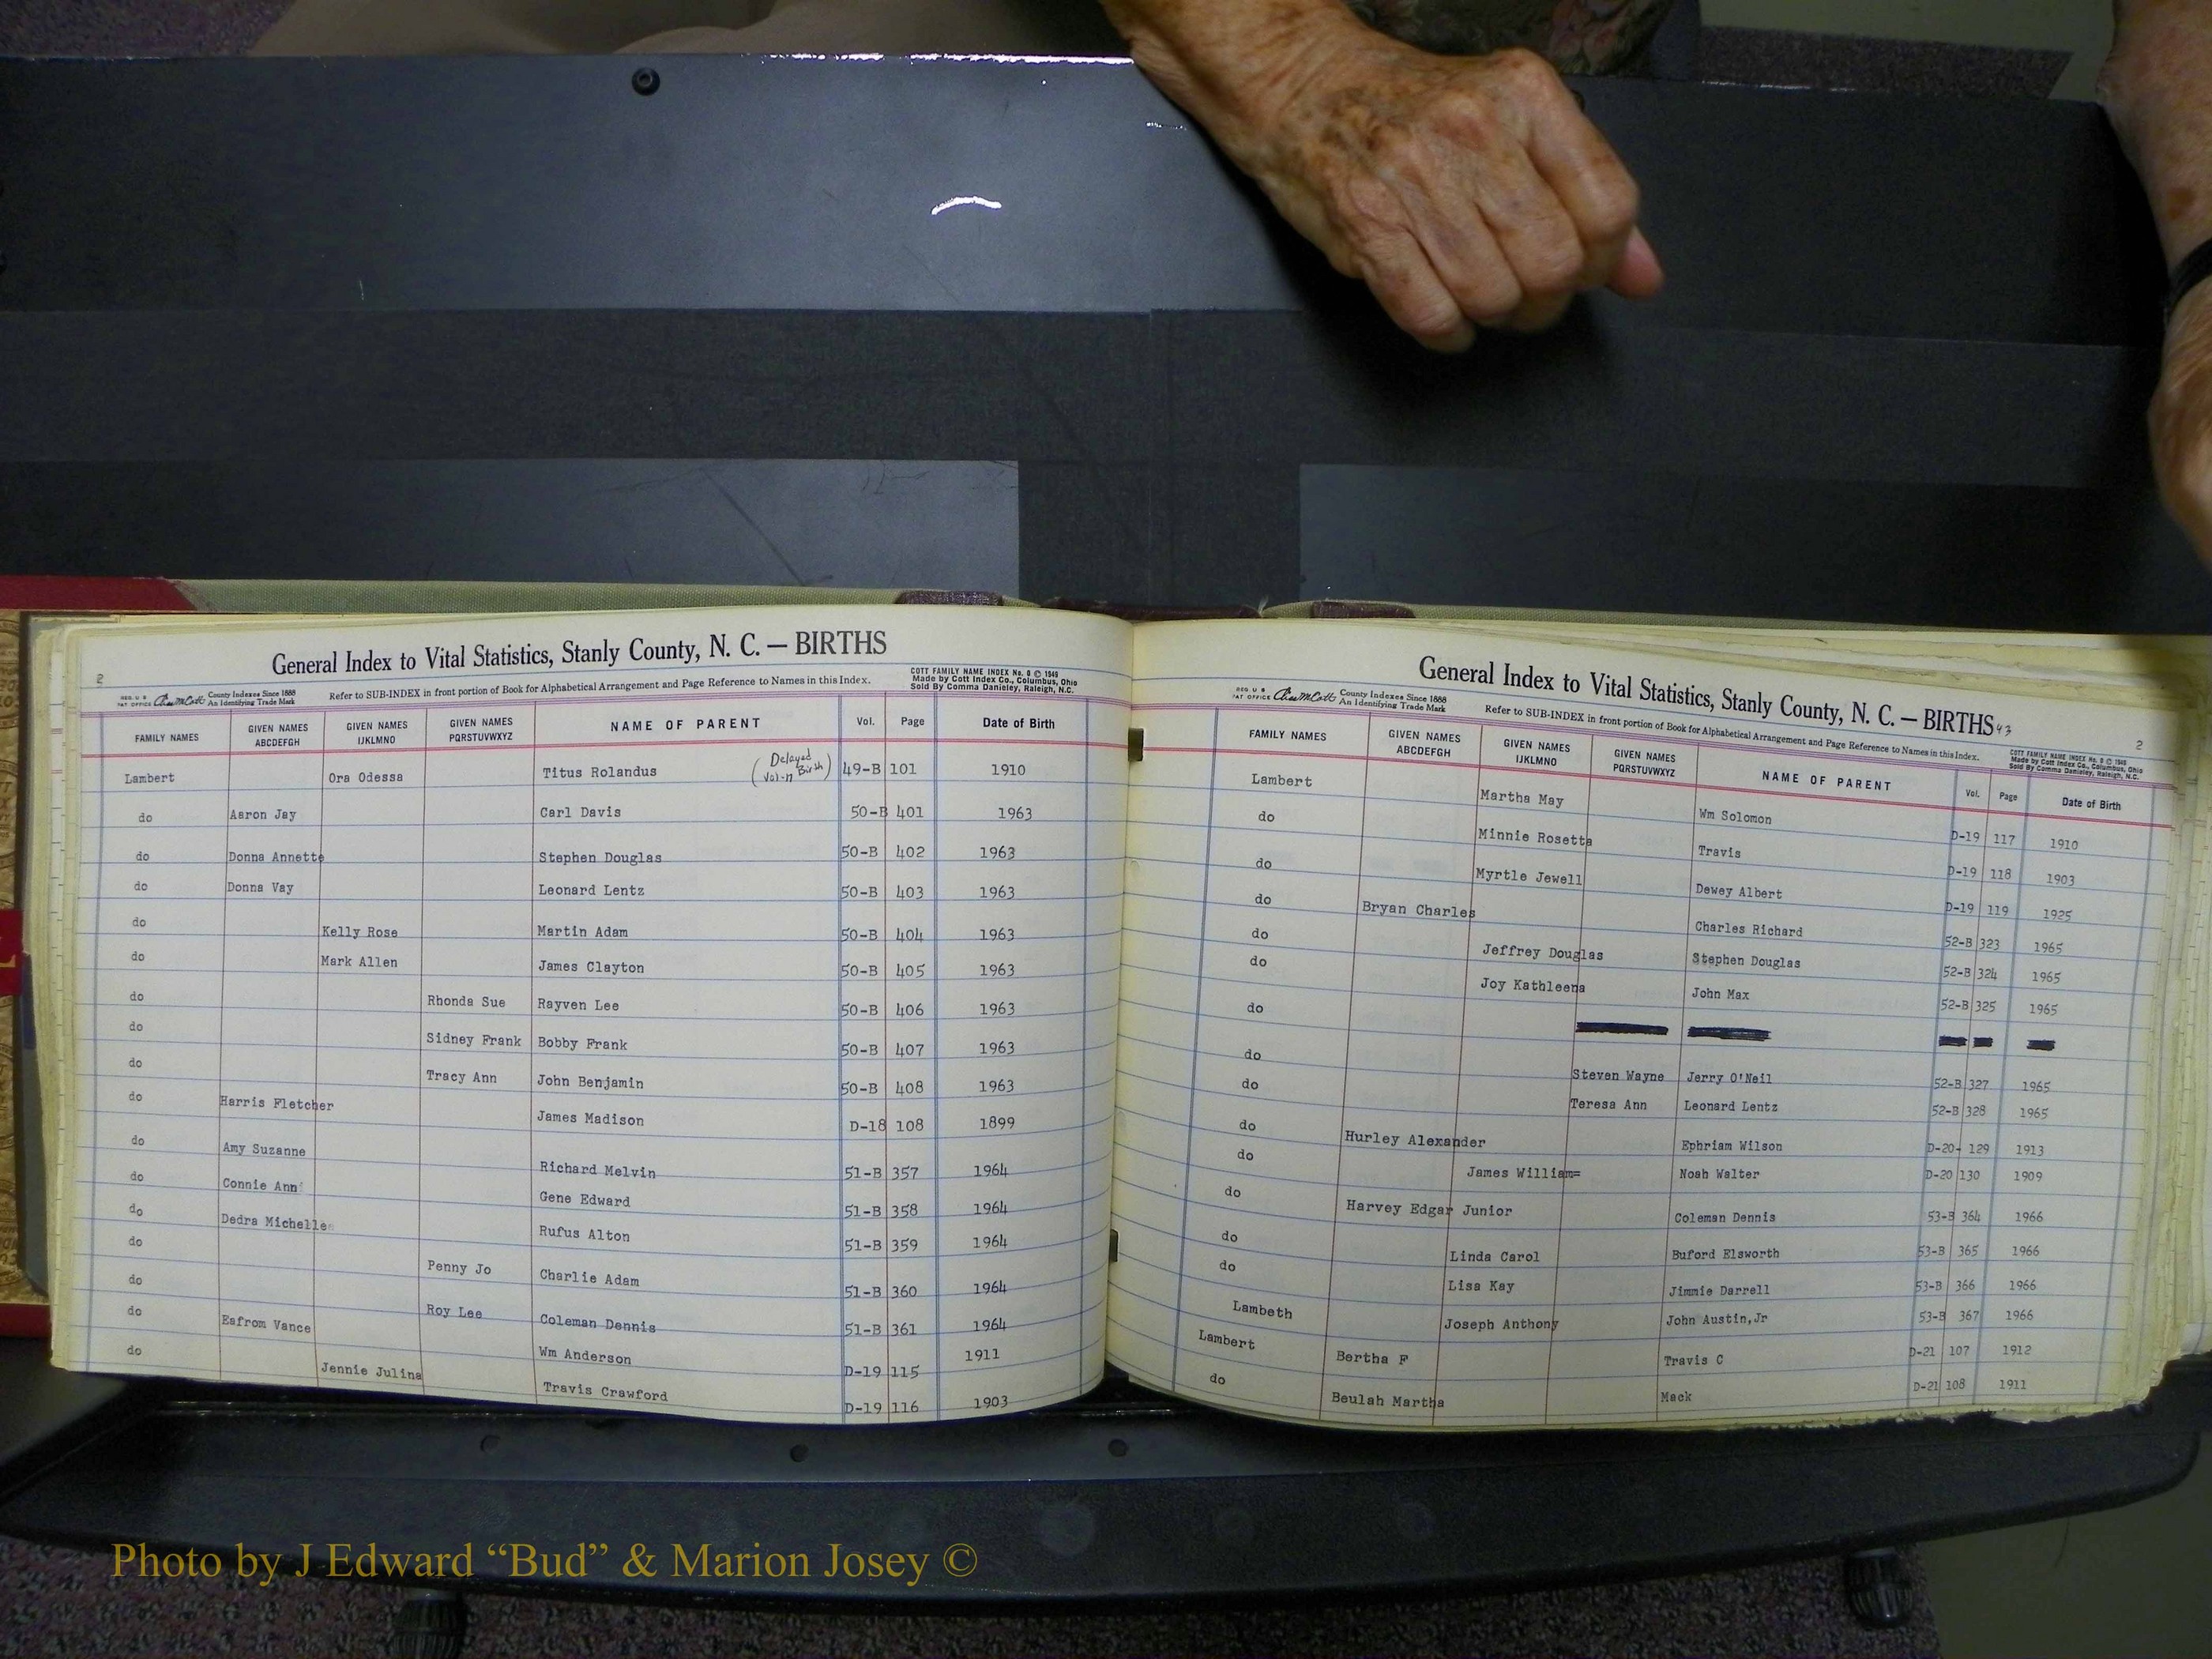 2
General Index to Vital Statistics, Stanly County, N. C. — BIRTHS
REG. U S PAT OFFICE County Indexes Since 1888 An Identifying Trade Mark
Refer to SUB-INDEX in front portion of Book for Alphabetical Arrangement and Page Reference to Names in this Index.
COTT FAMILY NAME INDEX No. 8 © 1949
Made by Cott Index Co., Columbus, Ohio
Sold By Comma Danieley, Raleigh, N.C.
FAMILY NAMES GIVEN NAMES ABCDEFGH GIVEN NAMES IJKLMNO GIVEN NAMES PQRSTUVWXYZ NAME OF PARENT Vol. Page Date of Birth
Lambert Ora Odessa Titus Rolandus (Delayed Birth Vol-17) 49-B 101 1910
do Aaron Jay Carl Davis 50-B 401 1963
do Donna Annette Stephen Douglas 50-B 402 1963
do Donna Vay Leonard Lentz 50-B 403 1963
do Kelly Rose Martin Adam 50-B 404 1963
do Mark Allen James Clayton 50-B 405 1963
do Rhonda Sue Rayven Lee 50-B 406 1963
do Sidney Frank Bobby Frank 50-B 407 1963
do Tracy Ann John Benjamin 50-B 408 1963
do Harris Fletcher James Madison D-18 108 1899
do Amy Suzanne Richard Melvin 51-B 357 1964
do Connie Ann Gene Edward 51-B 358 1964
do Dedra Michelle Rufus Alton 51-B 359 1964
do Penny Jo Charlie Adam 51-B 360 1964
do Roy Lee Coleman Dennis 51-B 361 1964
do Esfrom Vance Wm Anderson D-19 115 1911
do Jennie Julina Travis Crawford D-19 116 1903
General Index to Vital Statistics, Stanly County, N. C. — BIRTHS 43
2
REG. U S PAT OFFICE County Indexes Since 1888 An Identifying Trade Mark
Refer to SUB-INDEX in front portion of Book for Alphabetical Arrangement and Page Reference to Names in this Index.
COTT FAMILY NAME INDEX No. 8 © 1949
Made by Cott Index Co., Columbus, Ohio
Sold By Comma Danieley, Raleigh, N.C.
FAMILY NAMES GIVEN NAMES ABCDEFGH GIVEN NAMES IJKLMNO GIVEN NAMES PQRSTUVWXYZ NAME OF PARENT Vol. Page Date of Birth
Lambert Martha May Wm Solomon D-19 117 1910
do Minnie Rosetta Travis D-19 118 1903
do Myrtle Jewell Dewey Albert D-19 119 1925
do Bryan Charles Charles Richard 52-B 323 1965
do Jeffrey Douglas Stephen Douglas 52-B 324 1965
do Joy Kathleena John Max 52-B 325 1965
do
do Steven Wayne Jerry O'Neil 52-B 327 1965
do Teresa Ann Leonard Lentz 52-B 328 1965
do Hurley Alexander Ephriam Wilson D-20- 129 1913
do James William= Noah Walter D-20 130 1909
do Harvey Edgar Junior Coleman Dennis 53-B 364 1966
do Linda Carol Buford Elsworth 53-B 365 1966
do Lisa Kay Jimmie Darrell 53-B 366 1966
Lambeth Joseph Anthony John Austin,Jr 53-B 367 1966
Lambert Bertha F Travis C D-21 107 1912
do Beulah Martha Mack D-21 108 1911
Photo by J Edward “Bud” & Marion Josey ©